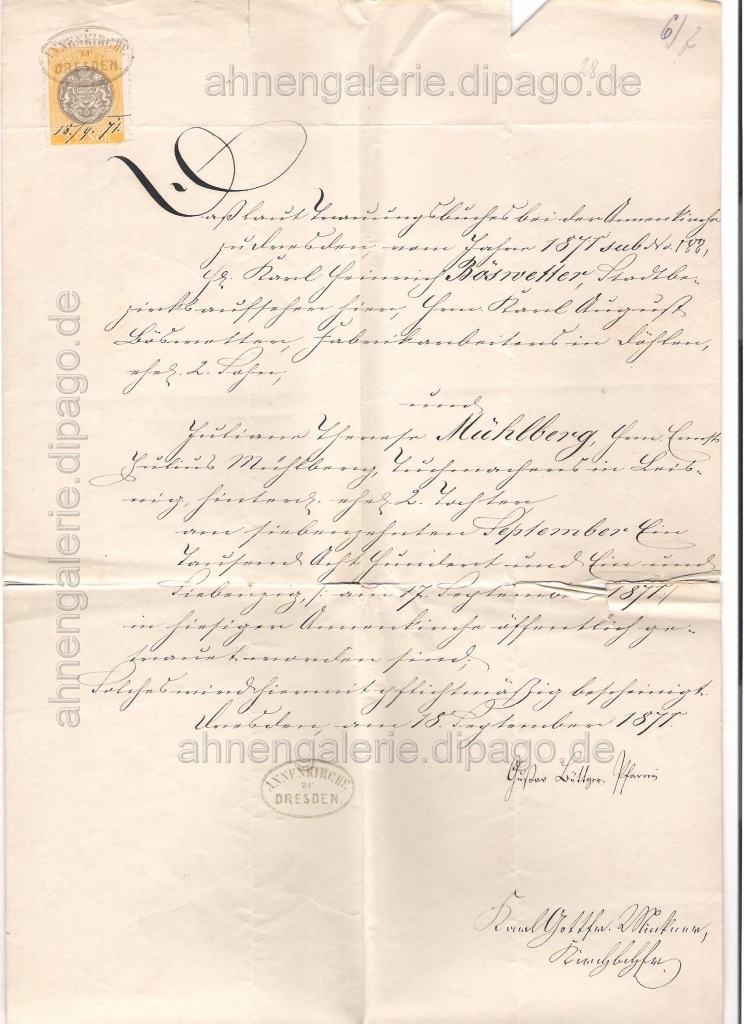 ANNENKIRCHE
ZU
DRESDEN.
18./9. 71.
6/7
28
ahnengalerie.dipago.de
Daß laut Trauungsbuches bei der Annenkirche
zu Dresden, vom Jahre 1871 sub No. 188,
Hr. Karl Heinrich Böswetter, Stadtbe-
zirksaufseher hier, Hrn. Karl August
Böswetter, Fabrikarbeiters in Döhlen,
ehel. 2. Sohn,
und
Juliane Therese Mühlberg, Hrn. Ernst
Julius Mühlberg, Tuchmachers in Leis-
nig, hinterl. ehel. 2. Tochter
am siebenzehnten September Ein
Tausend Acht Hundert und Ein und
Siebenzig, /: am 17. September 1871 :/
in hiesiger Annenkirche öffentlich ge-
trauet worden sind,
Solches wird hiermit pflichtmäßig bescheinigt.
Dresden, am 18. September 1871.
ahnengalerie.dipago.de
ahnengalerie.dipago.de
ANNENKIRCHE
ZU
DRESDEN.
Gustav Böttger, Pfarrer
Karl Gottfr. Winkner,
Kirchbchfr.